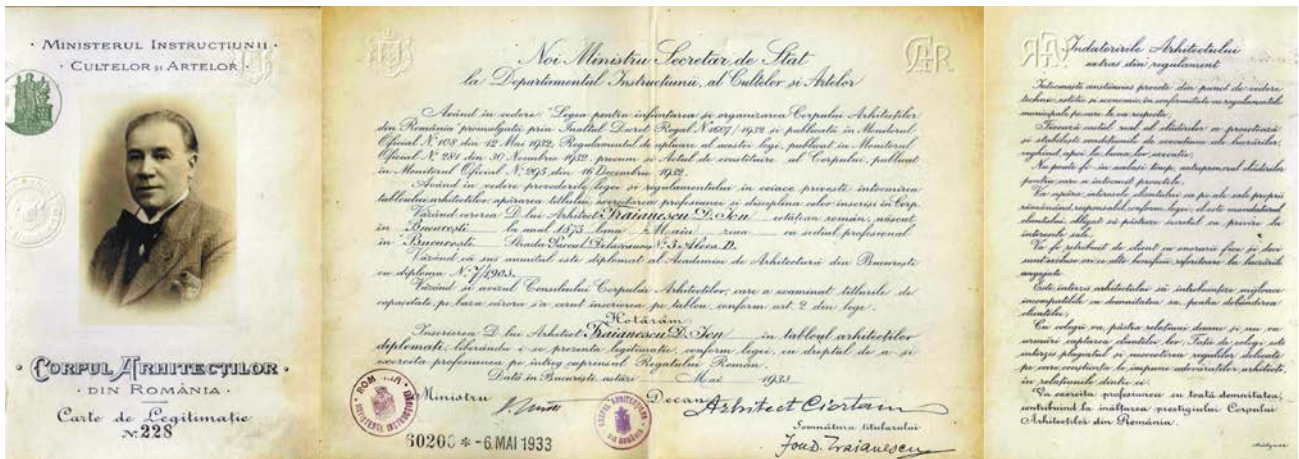 · MINISTERUL INSTRUCȚIUNII ·
· CULTELOR ȘI ARTELOR ·
CORPUL ARHITECȚILOR
· DIN ROMÂNIA ·
Carte de Legitimație
Nº 228
Noi Ministru Secretar de Stat
la Departamentul Instrucțiunii, al Cultelor și Artelor
CAR
Având în vedere "Legea pentru înființarea și organizarea Corpului Arhitecților
din România" promulgată prin Inaltul Decret Regal Nº 1607/1932 și publicată în Monitorul
Oficial Nº 108 din 12 Mai 1932, Regulamentul de aplicare al acestei legi, publicat în Monitorul
Oficial Nº 281 din 30 Noembrie 1932, precum și Actul de constituire al Corpului, publicat
în Monitorul Oficial Nº 295 din 16 Decembrie 1932.
Având în vedere prevederile legei și regulamentului în ceiace privește întocmirea
tabloului arhitecților, apărarea titlului, exercitarea profesiunei și disciplina celor înscriși în Corp.
Văzând cererea D-lui Arhitect Traianescu D. Ion cetățean român, născut
în București la anul 1875 luna Maiu ziua cu sediul profesional
în București Strada Parcul Delavrancea Nº 3 Aleea D.
Văzând că sus numitul este diplomat al Academiei de Arhitectură din București
cu diploma Nº 7/1903.
Văzând și avizul Consiliului Corpului Arhitecților, care a examinat titlurile de
capacitate pe baza cărora s'a cerut înscrierea pe tablou, conform art. 2 din lege.
Hotărâm:
Inscrierea D-lui Arhitect Traianescu D. Ion în tabloul arhitecților
diplomați, liberându-i-se prezenta legitimație, conform legei, cu dreptul de a-și
exercita profesiunea pe întreg cuprinsul Regatului Român.
Dată în București astăzi Mai 1933
Ministru
Decan
Arhitect Ciortan
Semnătura titularului
Ion D. Traianescu
60200 * - 6. MAI 1933
Indatoririle Arhitectului
extras din regulament
Intocmește conștiincios proecte din punct de vedere
technic, estetic și economic, în conformitate cu regulamentele
municipale pe care le va respecta.
Fixează costul real al clădirilor ce proectează
și stabilește condițiunile de executare ale lucrărilor,
veghind apoi la buna lor execuție.
Nu poate fi în acelaș timp, antreprenorul clădirilor
pentru care a întocmit proectele.
Va apăra interesele clientului ca pe ale sale proprii
rămânând responsabil conform legei, el este mandatarul
clientului, obligat să păstreze secretul cu privire la
interesele sale.
Va fi retribuit de client cu onorarii fixe și deci
sunt excluse orice alte beneficii referitoare la lucrările
angajate.
Este interzis arhitectului să întrebuințeze mijloace
incompatibile cu demnitatea sa, pentru dobândirea
clientelei.
Cu colegii va păstra relațiuni demne și nu va
urmări captarea clientilor lor. Față de colegi este
interzis plagiatul și nesocotirea regulilor delicate
pe care conștiința le impune adevăraților arhitecți
în relațiunile dintre ei.
Va exercita profesiunea cu toată demnitatea,
contribuind la înălțarea prestigiului Corpului
Arhitecților din România.